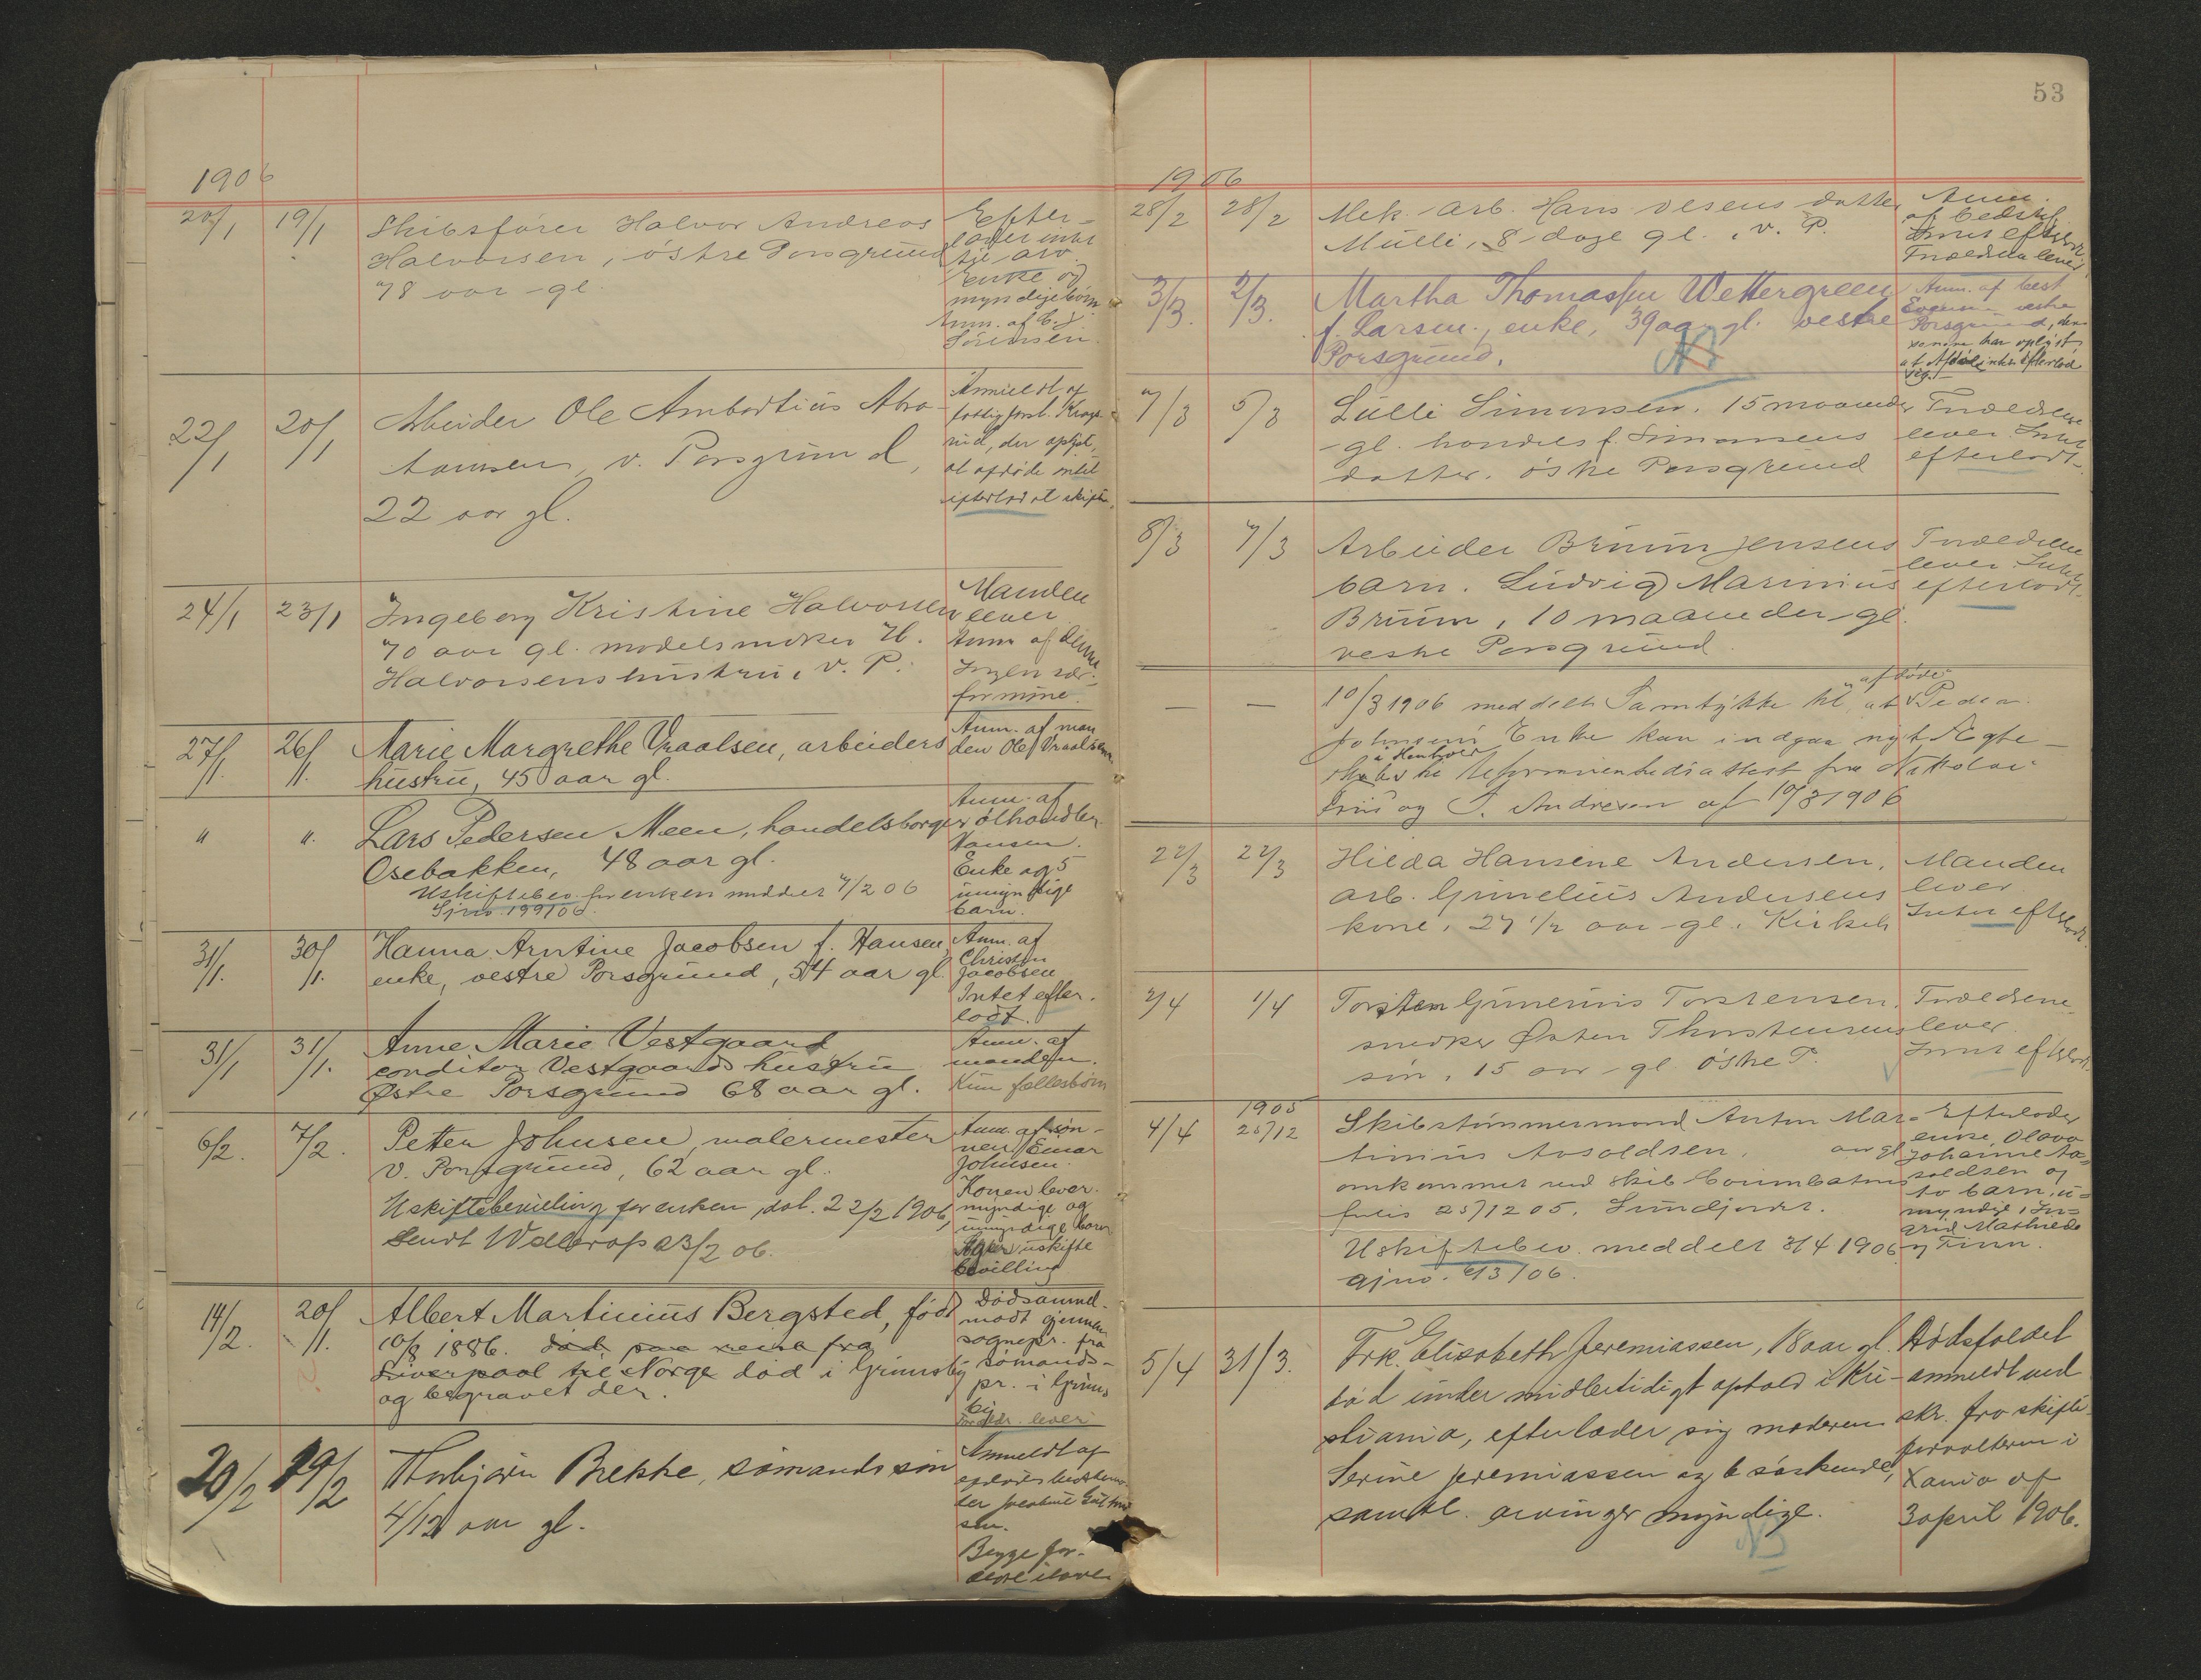 1906
20/1 19/1 Skibsfører Halvor Andreas
Halvorsen, østre Porsgrund
78 aar gl.
Efter-
lader intet
til arv.
Enke og
myndige børn
Anm. af C. J.
Sørensen.
22/1 20/1 Arbeider Ole Ambortius Abra-
hamsen, v. Porsgrund,
22 aar gl.
Anmeldt af
fattigforst.
rud, der opgol.
at afdøde intet
efterlod at skifte.
24/1 23/1 Ingeborg Kristine Halvorsen
70 aar gl. modelsnekker H.
Halvorsens hustru, v. P.
Manden
lever
Anm af denne
Ingen sær-
formue.
27/1. 26/1. Marie Margrethe Vraalsen, arbeiders
hustru, 45 aar gl.
Anm. af man
den Ole Vraalsen
" ". Lars Pedersen Meen, handelsborger
Osebakken, 48 aar gl.
Uskiftebev. for enken meddelt 7/2 06
Sjno. 199/06.
Anm. af
ølhandler
Hansen.
Enke og 5
umyndige
barn.
31/1. 30/1. Hanna Arntine Jacobsen f. Hansen
enke, vestre Porsgrund, 54 aar gl.
Anm. af
Christen
Jacobsen
Intet efter-
ladt.
31/1 31/1. Anne Marie Vestgaard
conditor Vestgaards hustru
Østre Porsgrund 68 aar gl.
Anm. af
manden.
Kun fællesbörn
6/2. 7/2. Petter Johnsen, malermester
V. Porsgrund, 62 aar gl.
Uskiftebevilling for enken, dat. 22/2 1906,
Sendt Wallerop 23/2 06.
Anm. af søn-
nen Einar
Johnsen.
Konen lever.
myndige og
umyndige børn
uskifte
bevilling
14/2. 20/1. Albert Martinius Bergsted, født
10/8 1886. död paa reise fra
Liverpool til Norge död i Grimsby
og begravet der.
Dödsanmel.
modt gjennem
sognepr. fra
sömands-
pr. i Grims
by
Forældr. lever
20/2 19/2 Thorbjørn Brekke, sømands søn
4/12 aar gl.
Anmeldt af
sen.
Begge for-
ældre ilove
53
1906
28/2 28/2 Mek. arb. Hans Olsens datter
Mulli, 8 dage gl., v. P.
Anm.
af bedstef.
Intet efterladt.
Forældrene lever
3/3. 2/3. Martha Thomassen Wettergreen
f. Larsen, enke, 39 aar gl. vestre
Porsgrund.
NB
Anm. af best
vestre
Porsgrund, den
senere har oplyst
at Afdøde intet efterlod
sig.
7/3 5/3 Lulli Simonsen, 15 maaneder
gl. handelsf. Simonsens
datter, østre Porsgrund
Forældrene
lever. Intet
efterladt.
8/3 7/3 Arbeider Bruun Jensens
barn. Ludvig Marinius
Bruun, 10 maaneder gl.
vestre Porsgrund.
Forældrene
lever. Intet
efterladt.
— — 10/3 1906 meddelt Samtykke til, at afdøde Peder
Johnsens Enke kan indgaa nyt Ægte-
skab i Henhold til Uformuenhedsattest fra Nikolai
Friis og T. Andresen af 10/3 1906
22/3 22/3 Hilda Hansine Andersen,
arb. Gunelius Andersens
kone, 27 1/2 aar gl.
Manden
lever
Intet efterladt.
2/4 1/4 Torsten Gunerius Torstensen.
snedker Østen Thorstensens
søn, 15 aar gl. Østre P.
Forældrene
lever.
Intet efterladt.
4/4 1905 25/12 Skibstømmermand Anton Mar-
tinius Aasoldsen, aar gl
omkommet med skib
25/12 05. Sundjordet.
Uskiftebev. meddelt 3/4 1906
Gjno. 613/06.
Efterlader
enke, Olava
Johanne Aa-
soldsen og
to barn, u-
myndige, In-
grid Mathilde
og Finn.
5/4 31/3. Frk. Elisabeth Jeremiassen, 18 aar gl.
død under midlertidigt ophold i Kri-
stiania, efterlader sig moderen
Serine Jeremiassen og 6 søskende,
samtl. arvinger myndige.
NB
Dødsfaldet
anmeldt ved
skr. fra skifte-
forvalteren i
Xania af
3 april 1906.